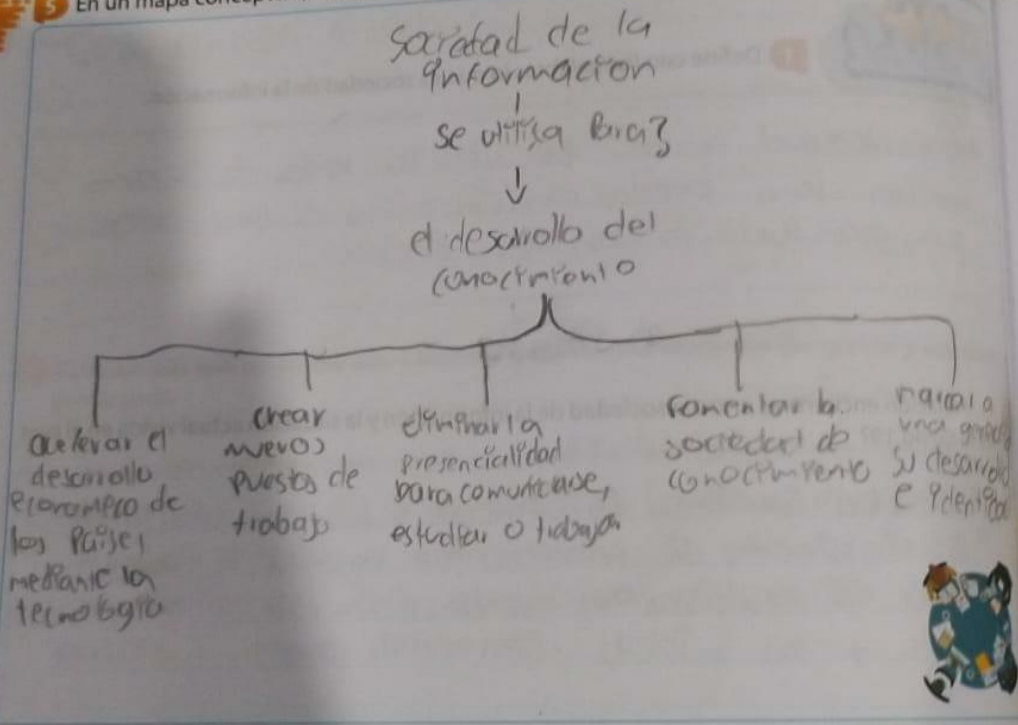 5 En un mapa
Sociedad de la
información
se utilisa Para?
el desarrollo del
conocimiento
acelerar el
desarrollo
economico de
los Paises
mediante la
tecnologia
crear
nuevos
Puestos de
trabajo
eliminar la
presencialidad
para comunicase,
estudiar o trabajar
Fomentar la
sociedad de
conocimiento
una
su desarrollo
e identi